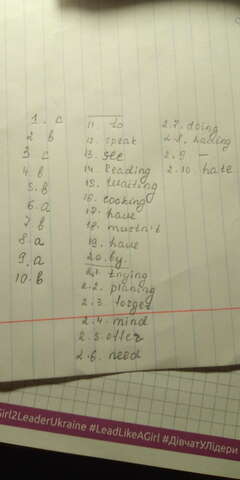 1. c
2 b
3 c
4. b
5. b
6. a
7. b
8. a
9. a
10. b
11. to
12. speak
13. see
14. Reading
15.
16. cooking
17. have
18. mustn't
19. have
20. by.
2.1. Enging
2.2. planing
2.3. forget
2.4. mind
2.5. offer
2.6. need
2.7. doing
2.8. hading
2.9 —
2.10. hate
Girl2LeaderUkraine #LeadLikeAGirl #ДівчатУЛідери